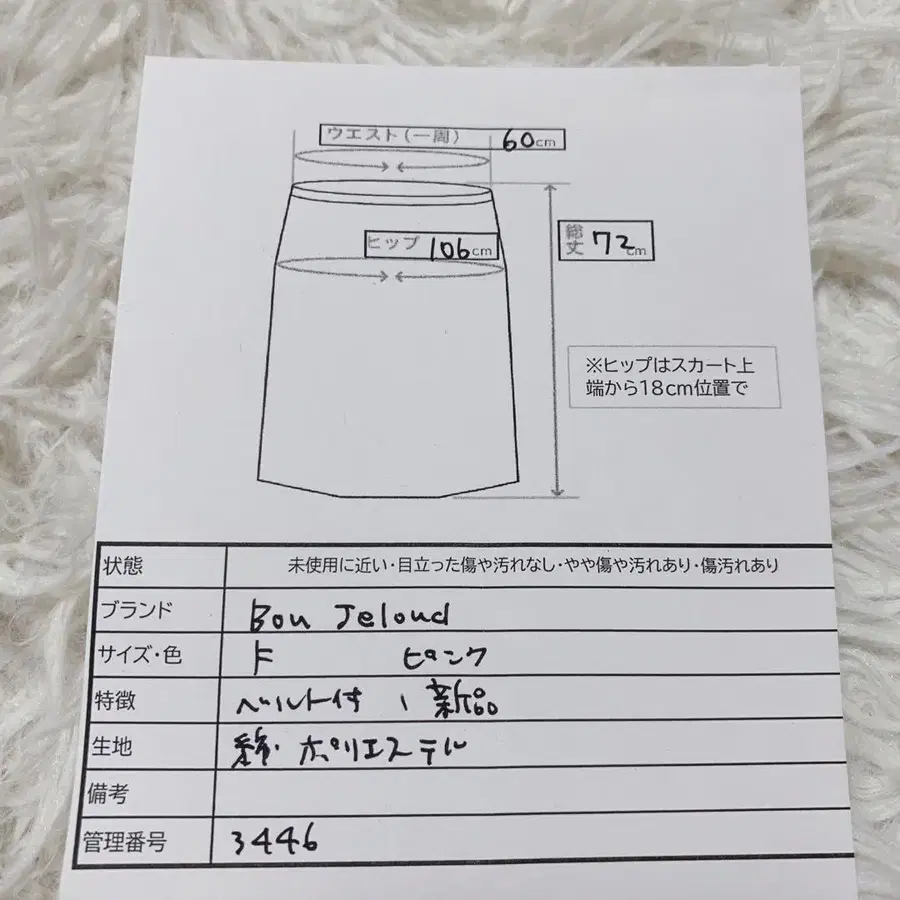 ウエスト(一周) 60cm
ヒップ 106cm
総丈 72cm
※ヒップはスカート上
端から18cm位置で
状態 未使用に近い・目立った傷や汚れなし・やや傷や汚れあり・傷汚れあり
ブランド Bou Jeloud
サイズ・色 F ピンク
特徴 ベルト付、新品
生地 綿・ポリエステル
備考
管理番号 3446